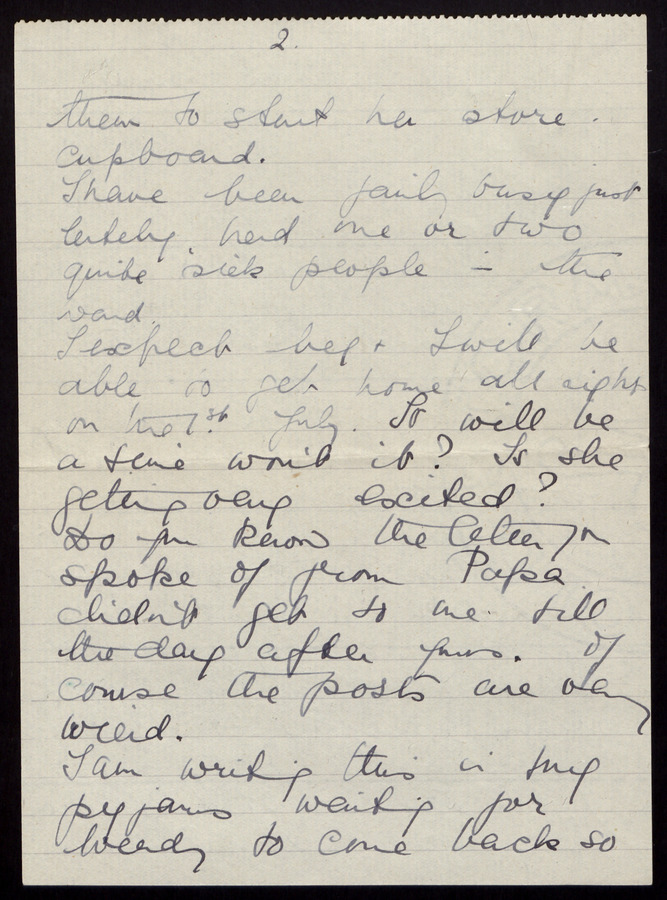 2.
them to start her store
cupboard.
I have been fairly busy just
lately, had one or two
quite sick people in the
ward.
I expect + I will be
able to get home all right
on the 1st July. It will be
a time won't it? Is she
getting very excited?
Do you know the letter you
spoke of from Papa
didn't get to me till
the day after yours. Of
course the posts are very
weird.
I am writing this in my
pyjams waiting for
Wendy to come back so